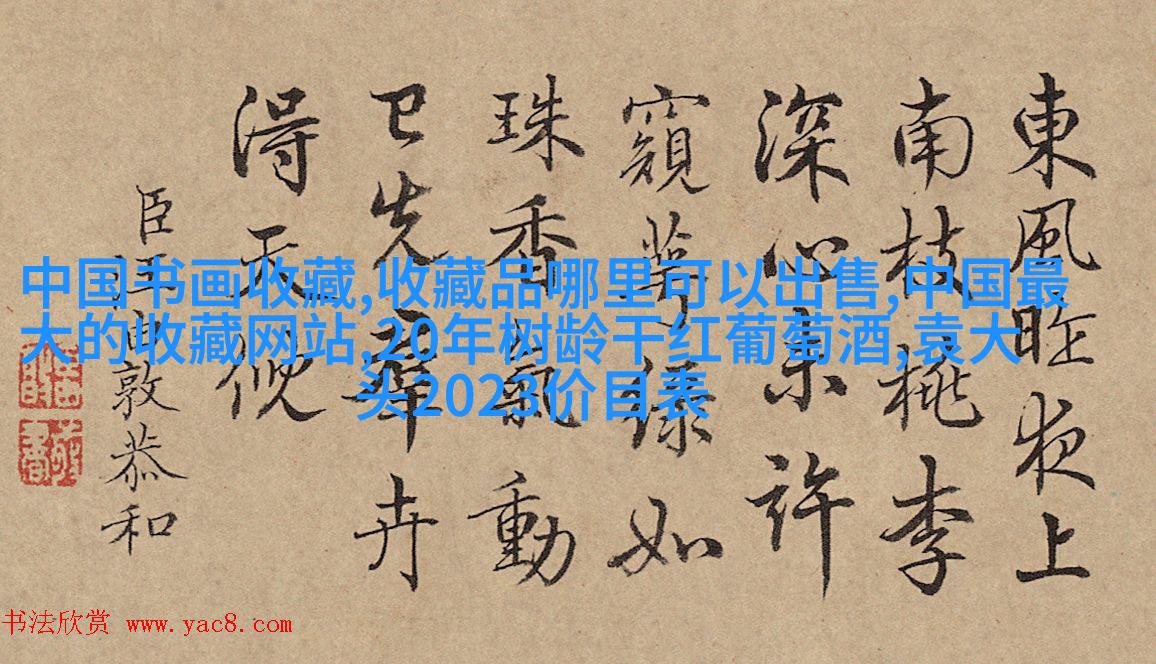 東風昨夜上
南枝桃李
深心未許
窺萼綠如
珠香氣動
已先羣卉
得天倪
臣汪由敦恭和
中国书画收藏,收藏品哪里可以出售,中国最
大的收藏网站,20年树龄干红葡萄酒,袁大
头2023价目表
书法欣赏 www.yac8.com